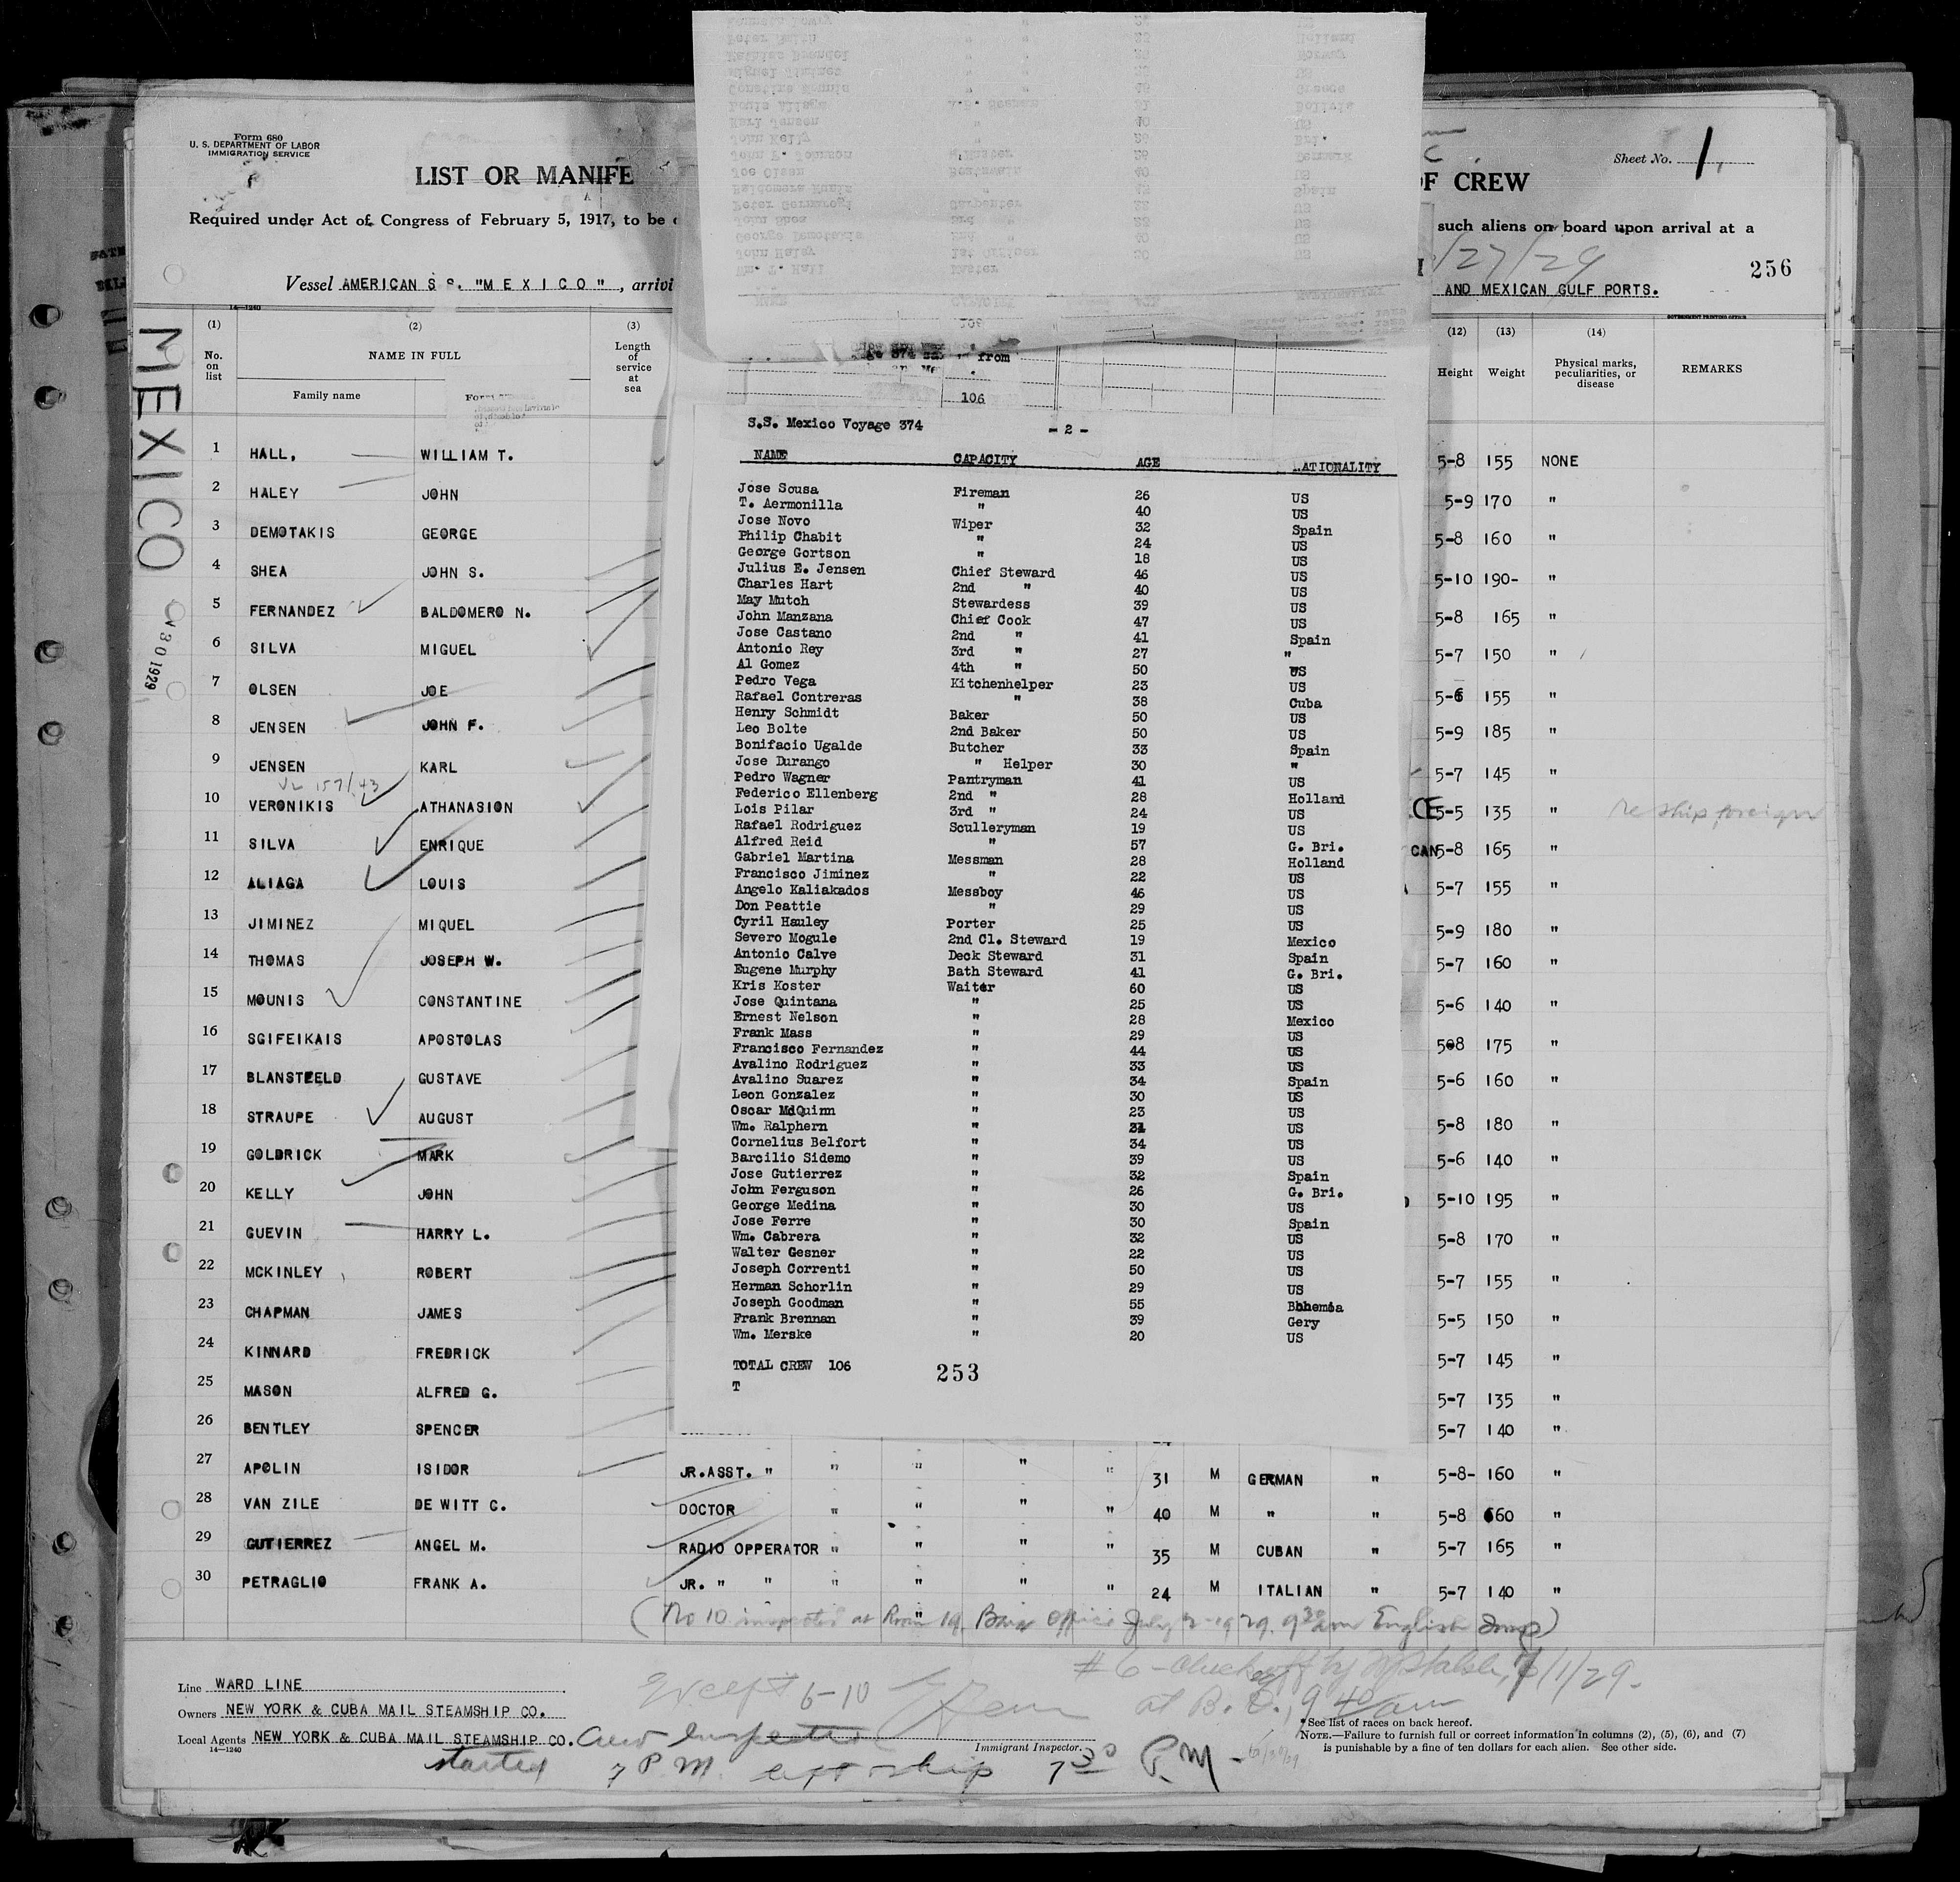 Form 680
U. S. DEPARTMENT OF LABOR
IMMIGRATION SERVICE
LIST OR MANIFE
OF CREW
Sheet No. 1,
Required under Act of Congress of February 5, 1917, to be
such aliens on board upon arrival at a
/27/29
256
Vessel AMERICAN S S. "MEXICO", arrivi
AND MEXICAN GULF PORTS.
14—1240
GOVERNMENT PRINTING OFFICE
MEXICO
30 1929
(1) (2) (3) (12) (13) (14)
No. on list NAME IN FULL Length of service at sea Height Weight Physical marks, peculiarities, or disease REMARKS
Family name
1 HALL, WILLIAM T. 5-8 155 NONE
2 HALEY JOHN 5-9 170 "
3 DEMOTAKIS GEORGE 5-8 160 "
4 SHEA JOHN S. 5-10 190- "
5 FERNANDEZ BALDOMERO N. 5-8 165 "
6 SILVA MIGUEL 5-7 150 "
7 OLSEN JOE 5-6 155 "
8 JENSEN JOHN F. 5-9 185 "
9 JENSEN KARL 5-7 145 "
10 VERONIKIS ATHANASION CE 5-5 135 " reship foreign
11 SILVA ENRIQUE CAN 5-8 165 "
12 ALIAGA LOUIS 5-7 155 "
13 JIMINEZ MIQUEL 5-9 180 "
14 THOMAS JOSEPH W. 5-7 160 "
15 MOUNIS CONSTANTINE 5-6 140 "
16 SGIFEIKAIS APOSTOLAS 508 175 "
17 BLANSTEELD GUSTAVE 5-6 160 "
18 STRAUPE AUGUST 5-8 180 "
19 GOLDRICK MARK 5-6 140 "
20 KELLY JOHN 5-10 195 "
21 GUEVIN HARRY L. 5-8 170 "
22 MCKINLEY ROBERT 5-7 155 "
23 CHAPMAN JAMES 5-5 150 "
24 KINNARD FREDRICK 5-7 145 "
25 MASON ALFRED G. 5-7 135 "
26 BENTLEY SPENCER 5-7 140 "
27 APOLIN ISIDOR JR.ASST. " " " " " 31 M GERMAN " 5-8- 160 "
28 VAN ZILE DE WITT C. DOCTOR " " " " 40 M " " 5-8 660 "
29 GUTIERREZ ANGEL M. RADIO OPPERATOR " " " " 35 M CUBAN " 5-7 165 "
30 PETRAGLIO FRANK A. JR. " " " " " " 24 M ITALIAN " 5-7 140 "
from
106
S.S. Mexico Voyage 374 - 2 -
NAME CAPACITY AGE NATIONALITY
Jose Sousa Fireman 26 US
T. Aermonilla " 40 US
Jose Novo Wiper 32 Spain
Philip Chabit " 24 US
George Gortson " 18 US
Julius E. Jensen Chief Steward 46 US
Charles Hart 2nd " 40 US
May Mutch Stewardess 39 US
John Manzana Chief Cook 47 US
Jose Castano 2nd " 41 Spain
Antonio Rey 3rd " 27 "
Al Gomez 4th " 50 US
Pedro Vega Kitchenhelper 23 US
Rafael Contreras " 38 Cuba
Henry Schmidt Baker 50 US
Leo Bolte 2nd Baker 50 US
Bonifacio Ugalde Butcher 33 Spain
Jose Durango " Helper 30 "
Pedro Wagner Pantryman 41 US
Federico Ellenberg 2nd " 28 Holland
Lois Pilar 3rd " 24 US
Rafael Rodriguez Sculleryman 19 US
Alfred Reid " 57 G. Bri.
Gabriel Martina Messman 28 Holland
Francisco Jiminez " 22 US
Angelo Kaliakados Messboy 46 US
Don Peattie " 29 US
Cyril Hauley Porter 25 US
Severo Mogule 2nd Cl. Steward 19 Mexico
Antonio Calve Deck Steward 31 Spain
Eugene Murphy Bath Steward 41 G. Bri.
Kris Koster Waiter 60 US
Jose Quintana " 25 US
Ernest Nelson " 28 Mexico
Frank Mass " 29 US
Francisco Fernandez " 44 US
Avalino Rodriguez " 33 US
Avalino Suarez " 34 Spain
Leon Gonzalez " 30 US
Oscar MdQuinn " 23 US
Wm. Ralphern " 31 US
Cornelius Belfort " 34 US
Barcilio Sidemo " 39 US
Jose Gutierrez " 32 Spain
John Ferguson " 26 G. Bri.
George Medina " 30 US
Jose Ferre " 30 Spain
Wm. Cabrera " 32 US
Walter Gesner " 22 US
Joseph Correnti " 50 US
Herman Schorlin " 29 US
Joseph Goodman " 55 Bohemia
Frank Brennan " 39 Gery
Wm. Merske " 20 US
TOTAL CREW 106
253
T
(No 10 inspected at Room 19. Barge Office July 2-1929. 9 30 am English Imp)
#6 - Check off by 7/1/29.
at B. O., 9 40 am
Except 6-10
Line WARD LINE
Owners NEW YORK & CUBA MAIL STEAMSHIP CO.
Local Agents NEW YORK & CUBA MAIL STEAMSHIP CO.
14—1240
Immigrant Inspector.
Crew Inspection
started 7 P.M. left ship 7 30 P.M.
*See list of races on back hereof.
NOTE.—Failure to furnish full or correct information in columns (2), (5), (6), and (7)
is punishable by a fine of ten dollars for each alien. See other side.